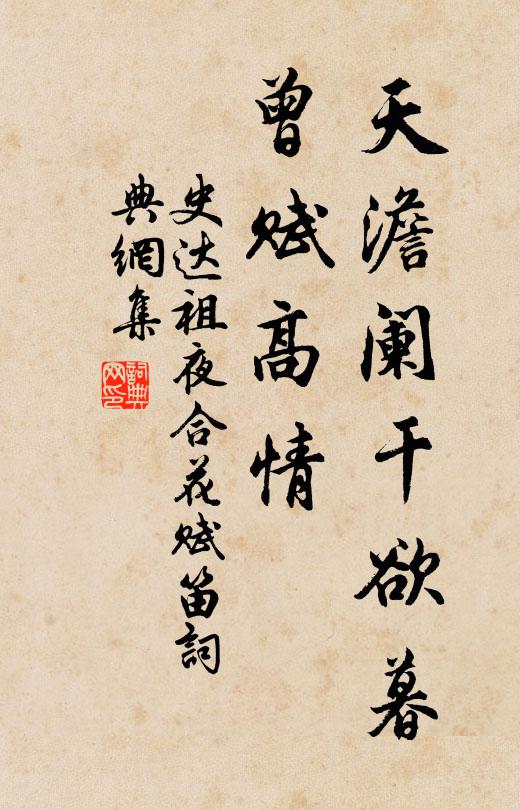 天澹阑干欲暮
曾赋高情
史达祖夜合花赋笛詞
典網集
詞典网印